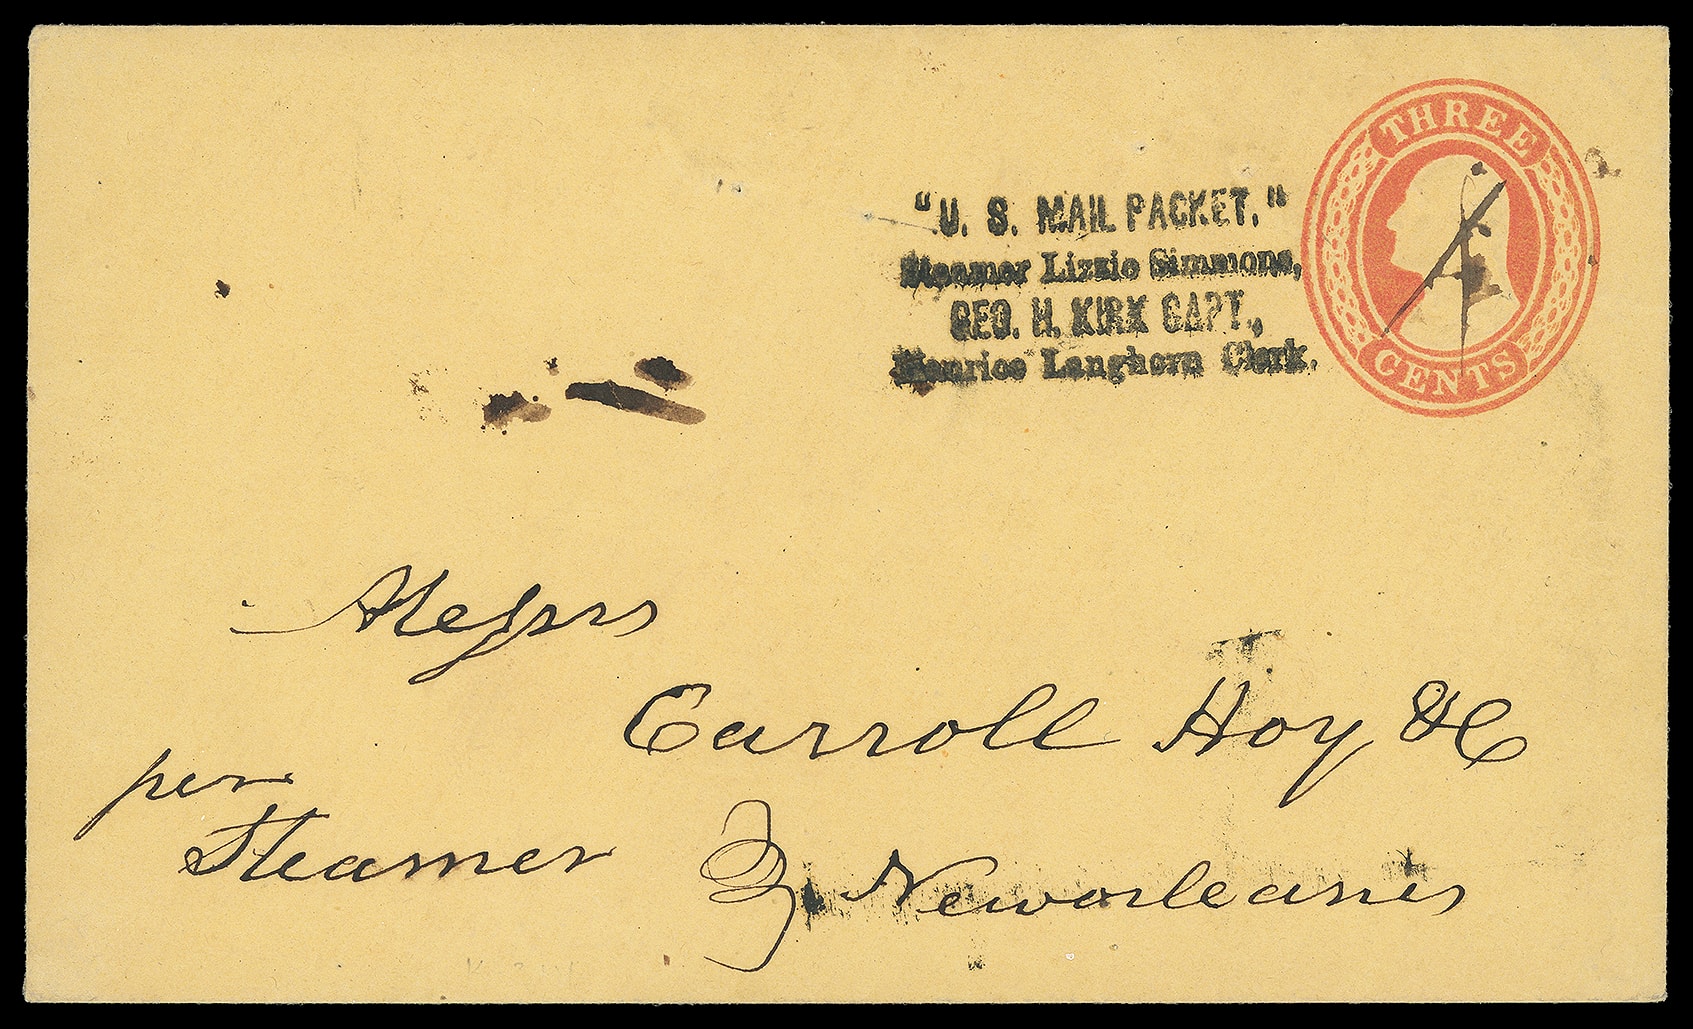 THREE
CENTS
"U. S. MAIL PACKET."
Steamer Lizzie Simmons,
GEO. H. KIRK CAPT.,
Maurice Langhorn Clerk.
Messrs
Carroll Hoy & C
per
Steamer
Neworleans